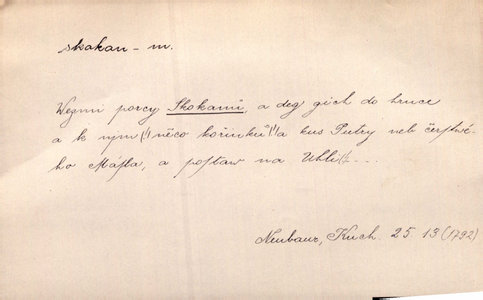 skokan – m.
Wezmi porcy Skokanů, a deg gich do hrnce
a k nym (!) něco kořinků (!) a kus Putry neb čerstwé-
ho Másla, a postaw na Uhli(: ...
Neubauer, Kuch. 25. 13 (1792)